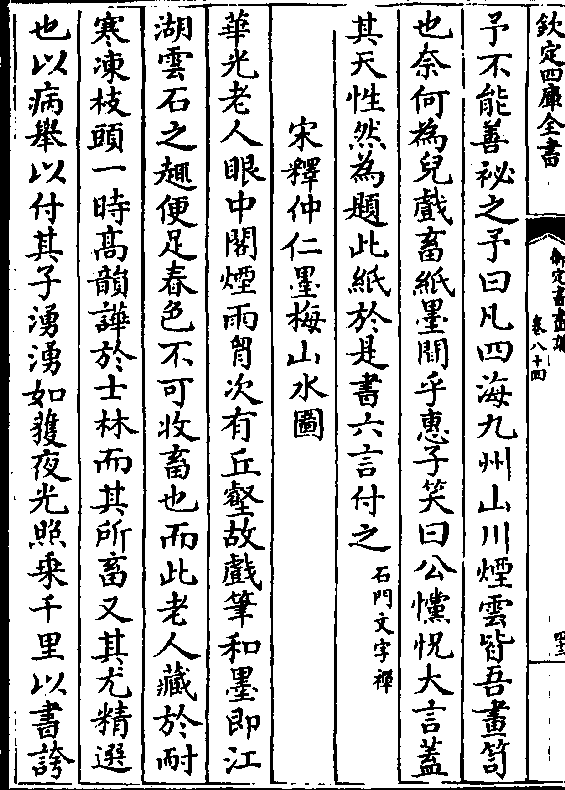 欽定四庫全書
御定書畫譜
卷八十四
予不能善祕之予曰凡四海九州山川煙雲皆吾畫笥
也奈何為兒戲畜紙墨間乎惠子笑曰公儻怳大言蓋
其天性然為題此紙於是書六言付之石門文字禪
宋釋仲仁墨梅山水圖
華光老人眼中閣煙雨胷次有丘壑故戲筆和墨即江
湖雲石之趣便足春色不可收畜也而此老人藏於耐
寒凍枝頭一時高韻譁於士林而其所畜又其尤精選
也以病舉以付其子湧湧如獲夜光照乘千里以書誇